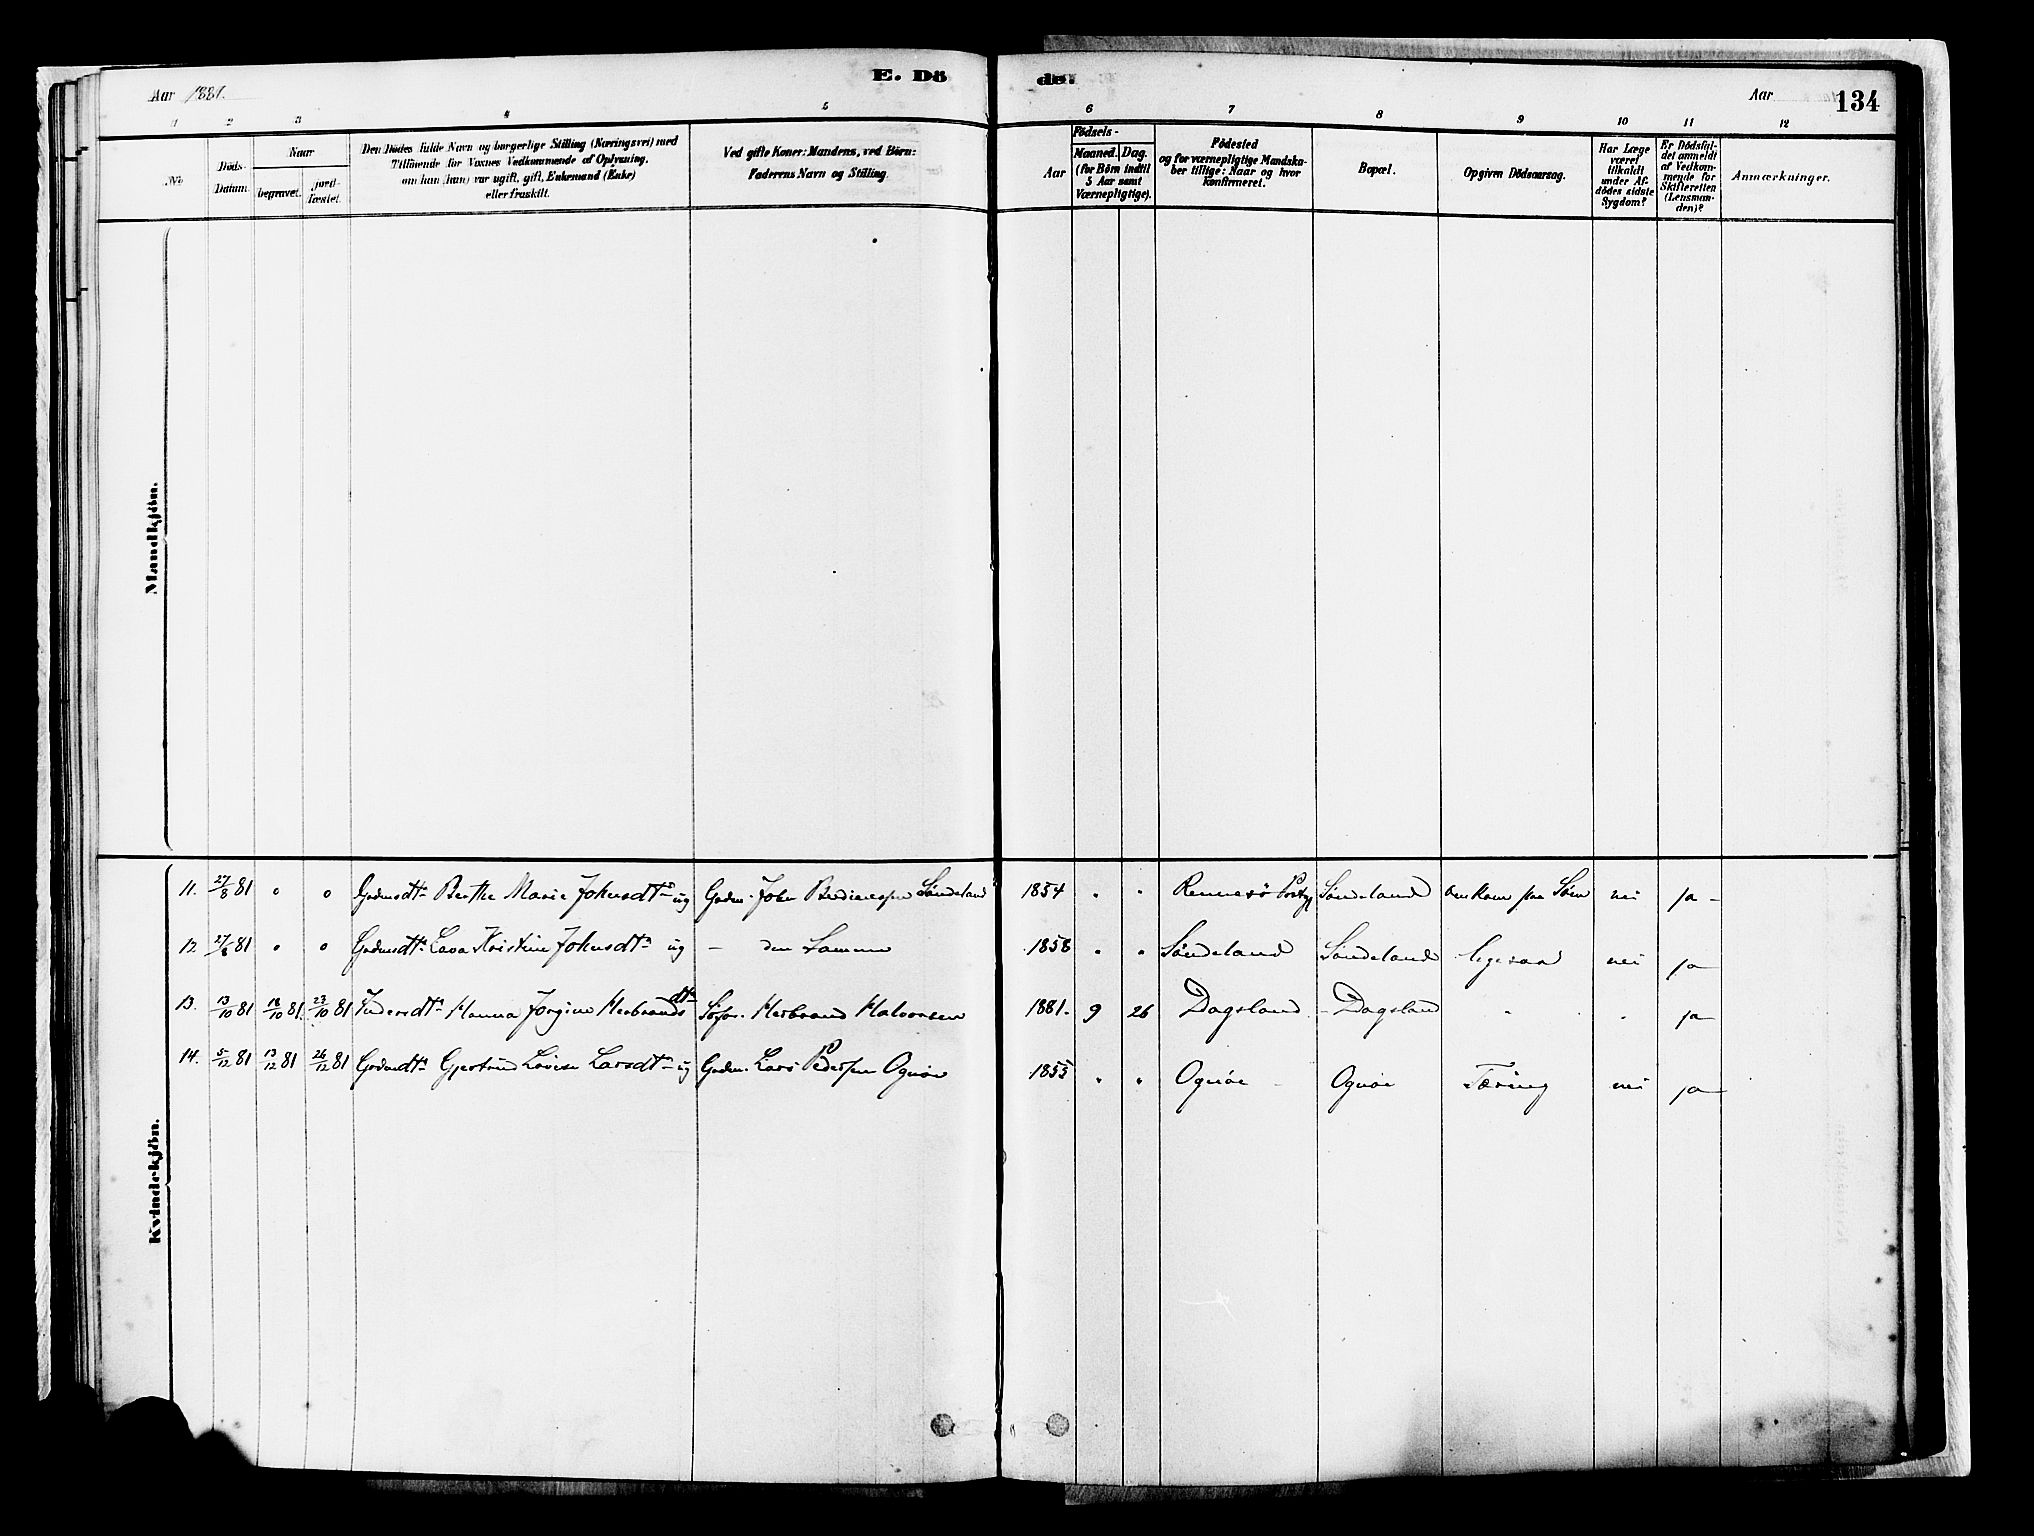 E. Dö
de.
Aar 1881.
Aar
134
1 2 3 4 5 6 7 8 9 10 11 12
No
Döds-Datum.
Naar
begravet.
jord-fæstet.
Den Dödes fulde Navn og borgerlige Stilling (Næringsvei) med
Tilföiende for Voxnes Vedkommende af Oplysning,
om han (hun) var ugift, gift, Enkemand (Enke)
eller fraskilt.
Ved gifte Koner: Mandens, ved Börn:
Faderens Navn og Stilling
Födsels-
Aar
Maaned.
Dag.
(for Börn indtil
5 Aar samt
Værnepligtige).
Födested
og for værnepligtige Mandska-
ber tillige: Naar og hvor
konfirmeret.
Bopæl.
Opgiven Dödsaarsag.
Har Læge
været
tilkaldt
under Af-
dödes sidste
Sygdom?
Er Dödsfal-
det anmeldt
af Vedkom-
mende for
Skifteretten
(Lensman-
den)?
Anmærkninger.
Mandkjön.
Kvindekjön.
11. 27/8 81 " " Gdmdtr Berthe Marie Johnsdtr ug Gdm. John Søndeland 1854 " " Rennesö Søndeland omkom paa Søen nei ja
12 27/8 81 " " Gdmdtr Kristine Johnsdtr ug — den Samme 1858 " " Søndeland Søndeland ligesaa nei ja
13. 13/10 81 18/10 81 23/10 81 Hanna Jorgine Herbrandsdtr Herbrand Halvorsen 1881. 9 26 Dagsland Dagsland " " ja
14. 5/12 81 13/12 81 26/12 81 Gdmdtr Gjertrud Lovise Larsdtr ug Gdm. Lars Pedersen Ognøe 1855 " " Ognøe Ognøe Tæring nei ja